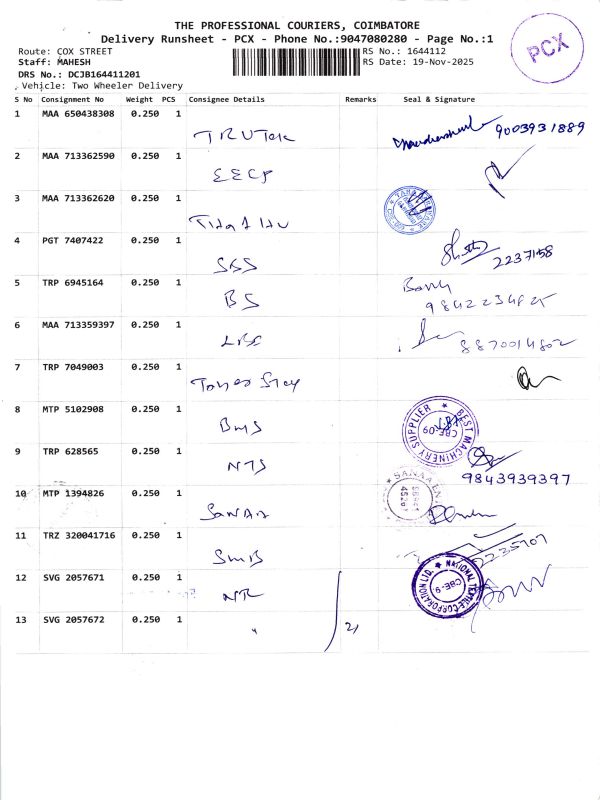 THE PROFESSIONAL COURIERS, COIMBATORE
Delivery Runsheet - PCX - Phone No.:9047080280 - Page No.:1
PCX
Route: COX STREET
RS No.: 1644112
Staff: MAHESH
RS Date: 19-Nov-2025
DRS No.: DCJB164411201
Vehicle: Two Wheeler Delivery
S No Consignment No Weight PCS Consignee Details Remarks Seal & Signature
1 MAA 650438308 0.250 1 9003931889
2 MAA 713362590 0.250 1
3 MAA 713362620 0.250 1
4 PGT 7407422 0.250 1 SSS 2237158
5 TRP 6945164 0.250 1 BS
6 MAA 713359397 0.250 1 8870014802
7 TRP 7049003 0.250 1
8 MTP 5102908 0.250 1 BMS BEST MACHINERY SUPPLIER CBE-09
9 TRP 628565 0.250 1 NTS 9843939397
10 MTP 1394826 0.250 1
11 TRZ 320041716 0.250 1 SMB
12 SVG 2057671 0.250 1 NATIONAL TEXTILE CORPORATION LTD. CBE-9
13 SVG 2057672 0.250 1 "